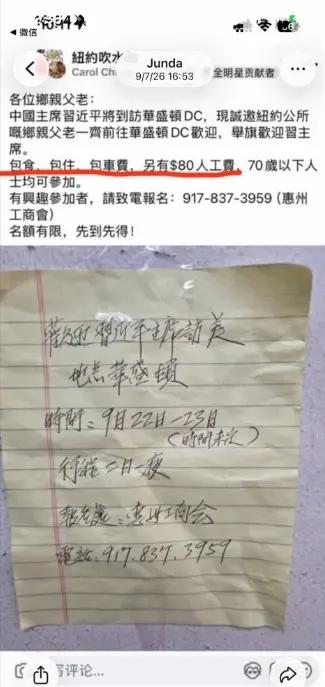 微信
紐約吹水
Carol Ch
Junda
9/7/26 16:53
全明星贡献者
各位鄉親父老:
中國主席習近平將到訪華盛頓DC，現誠邀紐約公所
嘅鄉親父老一齊前往華盛頓DC歡迎，舉旗歡迎習主
席。
包食，包住，包車費，另有$80人工費，70歲以下人
士均可參加。
有興趣參加者，請致電報名：917-837-3959 (惠州
工商會)
名額有限，先到先得！
歡迎習近平主席訪美
地点華盛頓
時間：9月22日-23日
(時間未定)
行程二日一夜
報名處：惠州工商会
電話：917.837.3959
写评论...